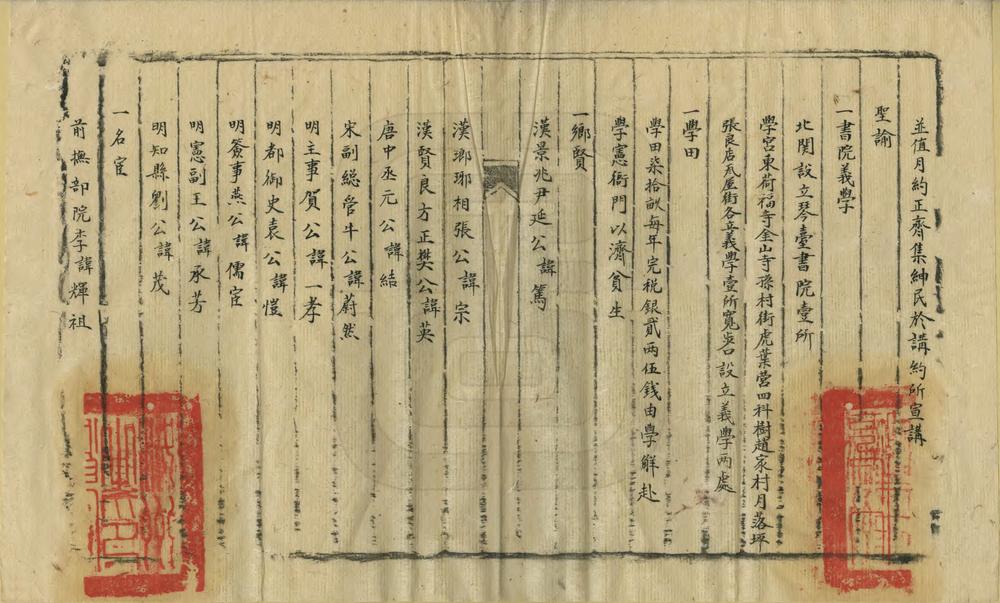 並值月約正齊集紳民於講約所宣講
聖諭
一書院義學
北関設立琴臺書院壹所
學宮東荷福寺金山寺孫村街虎葉營四科樹趙家村月落坪
張良店瓦屋街各立義學壹所寬步口設立義學兩處
一學田
學田柒拾畝每年完税銀貳兩伍钱由學解赴
學憲衙門以濟貧生
一鄉賢
漢景兆尹延公諱篤
漢瑯琊相張公諱宗
漢賢良方正樊公諱英
唐中丞元公諱結
宋副總管牛公諱蔚然
明主事賀公諱一孝
明都御史袁公諱愷
明僉事燕公諱儒宦
明憲副王公諱承芳
明知縣劉公諱茂
一名宦
前撫部院李諱輝祖